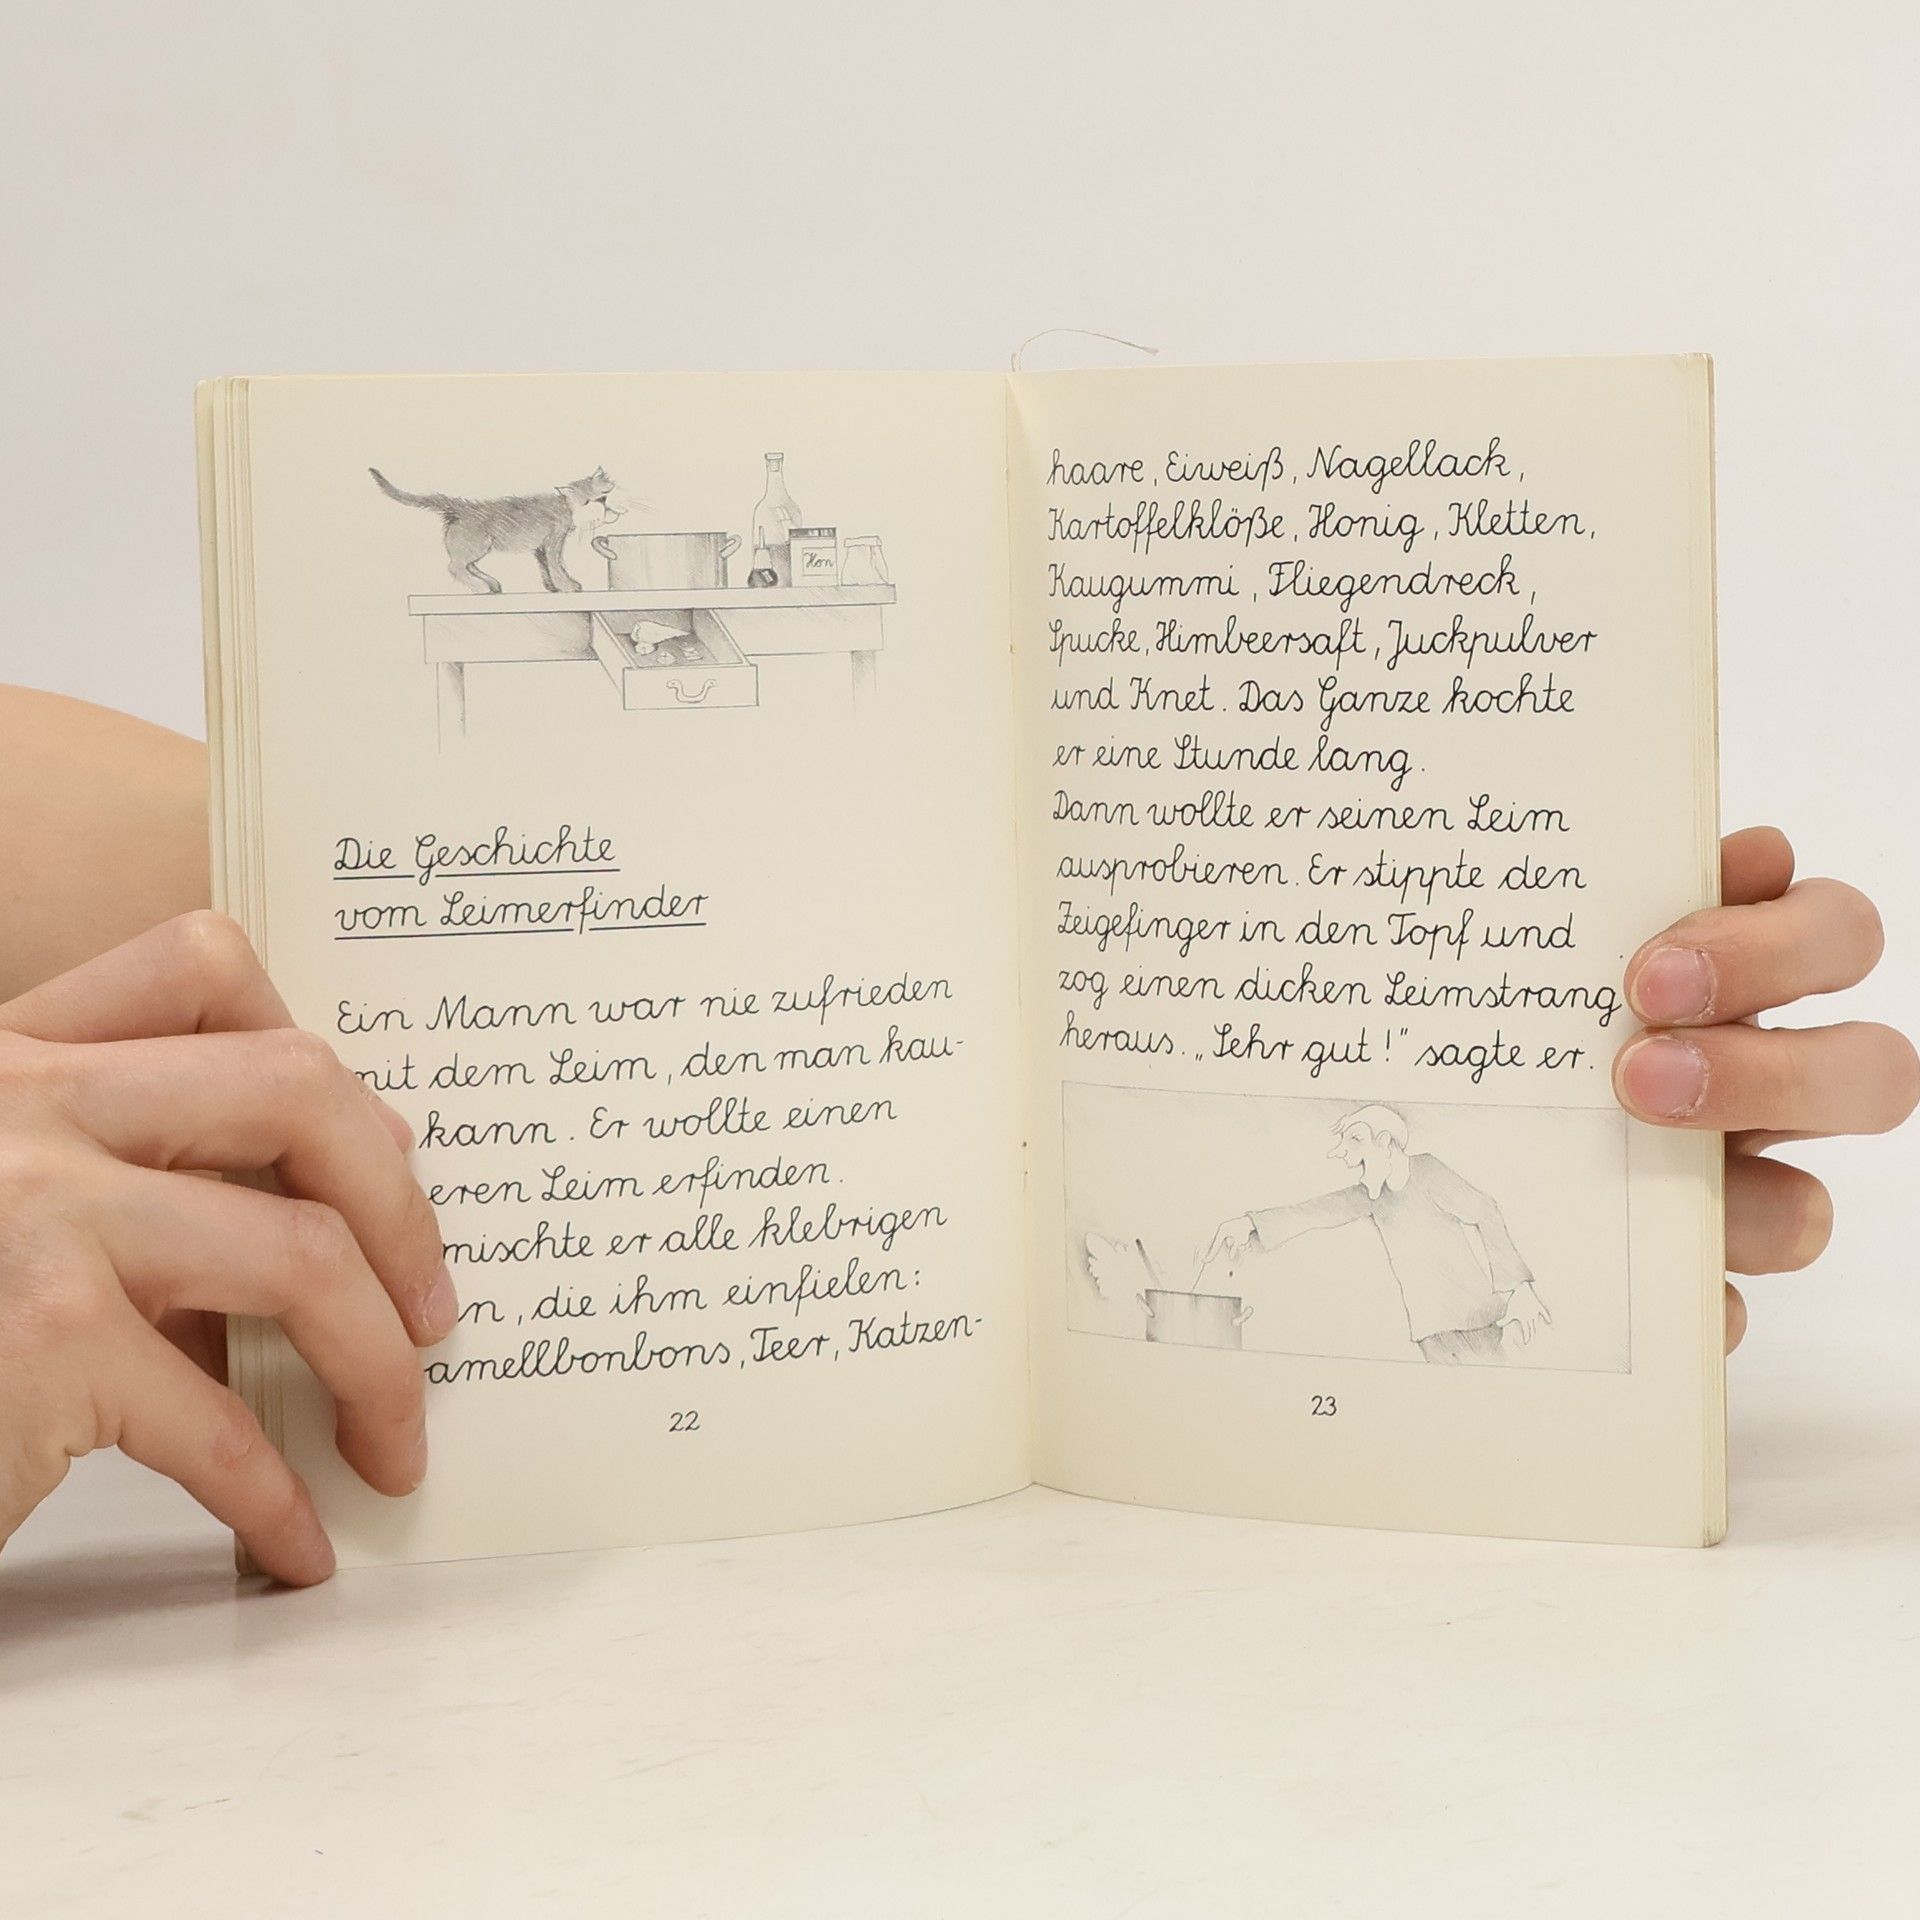 Hon
Die Geschichte
vom Leimerfinder
Ein Mann war nie zufrieden
mit dem Leim, den man kau-
kann. Er wollte einen
eren Leim erfinden.
mischte er alle klebrigen
n, die ihm einfielen:
amellbonbons, Teer, Katzen-
22
haare, Eiweiß, Nagellack,
Kartoffelklöße, Honig, Kletten,
Kaugummi, Fliegendreck,
Spucke, Himbeersaft, Juckpulver
und Knet. Das Ganze kochte
er eine Stunde lang.
Dann wollte er seinen Leim
ausprobieren. Er stippte den
Zeigefinger in den Topf und
zog einen dicken Leimstrang
heraus. „Sehr gut!" sagte er.
23